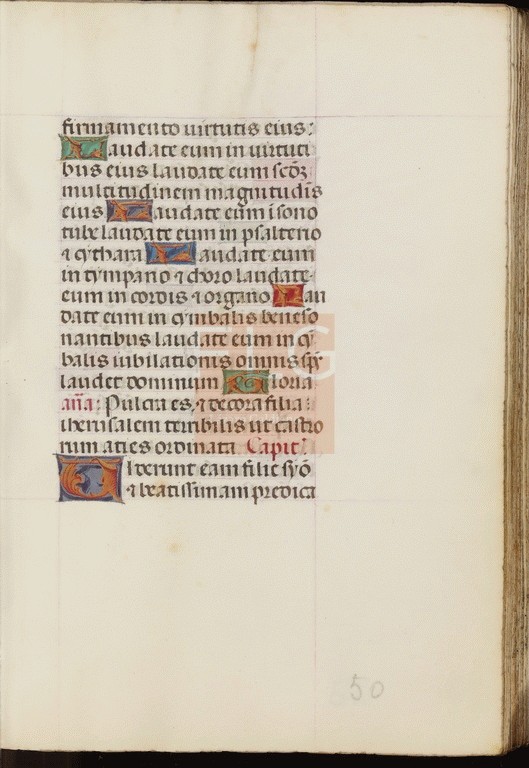 firmamento virtutis eius:
Laudate eum in virtuti
bus eius laudate eum scdʒ
multitudinem magnitudĩs
eius Laudate eum ĩ sono
tube laudate eum in psalterio
⁊ cythara Laudate eum
in tympano ⁊ choro laudate
eum in cordis ⁊ organo Lau
date eum in cymbalis beneso
nantibus laudate eum in cỹ
balis iubilationis omnis sp̃s
laudet dominum Gloria
aña: Pulcra es, ⁊ decora filia:
iherusalem terribilis ut castro
rum acies ordinata Capit̃.
Viderunt eam filie syõ
⁊ beatissimam predica
FLG
50